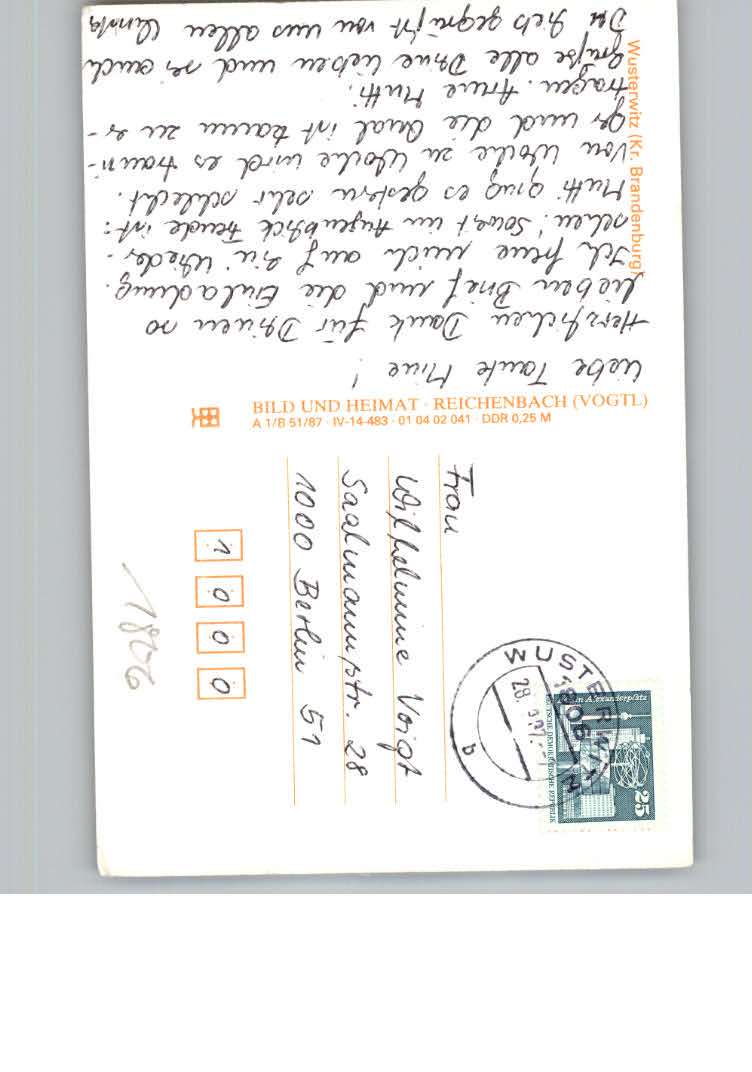 Liebe Tante Mine!
Herzlichen Dank für Deinen so
lieben Brief und die Einladung.
Ich freue mich auf ein Wieder-
sehen! Sowas im Augenblick Freude ist:
Mutti ging es gestern sehr schlecht.
Von Woche zu Woche wird es trauri-
ger und die Qual ist kaum zu er-
tragen. Arme Mutti.
Grüße alle Deine Lieben und sei auch
Du lieb gegrüßt von uns allen
Wusterwitz (Kr. Brandenburg)
BILD UND HEIMAT · REICHENBACH (VOGTL)
A 1/B 51/87 · IV-14-483 · 01 04 02 041 · DDR 0,25 M
Frau
Wilhelmine Voigt
Saalmannstr. 28
1000 Berlin 51
1 0 0 0
1806
WUSTERWITZ
1806
28.
b
Alexanderplatz
DEUTSCHE DEMOKRATISCHE REPUBLIK
25